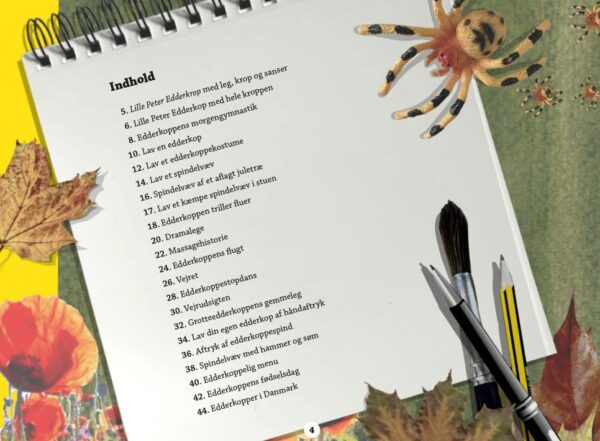 Indhold
5. Lille Peter Edderkrop med leg, krop og sanser
6. Lille Peter Edderkop med hele kroppen
8. Edderkoppens morgengymnastik
10. Lav en edderkop
12. Lav et edderkoppekostume
14. Lav et spindelvæv
16. Spindelvæv af et aflagt juletræ
17. Lav et kæmpe spindelvæv i stuen
18. Edderkoppen triller fluer
20. Dramalege
22. Massagehistorie
24. Edderkoppens flugt
26. Vejret
28. Edderkoppestopdans
30. Vejrudsigten
32. Grotteedderkoppens gemmeleg
34. Lav din egen edderkop af håndaftryk
36. Aftryk af edderkoppespind
38. Spindelvæv med hammer og søm
40. Edderkoppelig menu
42. Edderkoppens fødselsdag
44. Edderkopper i Danmark
4